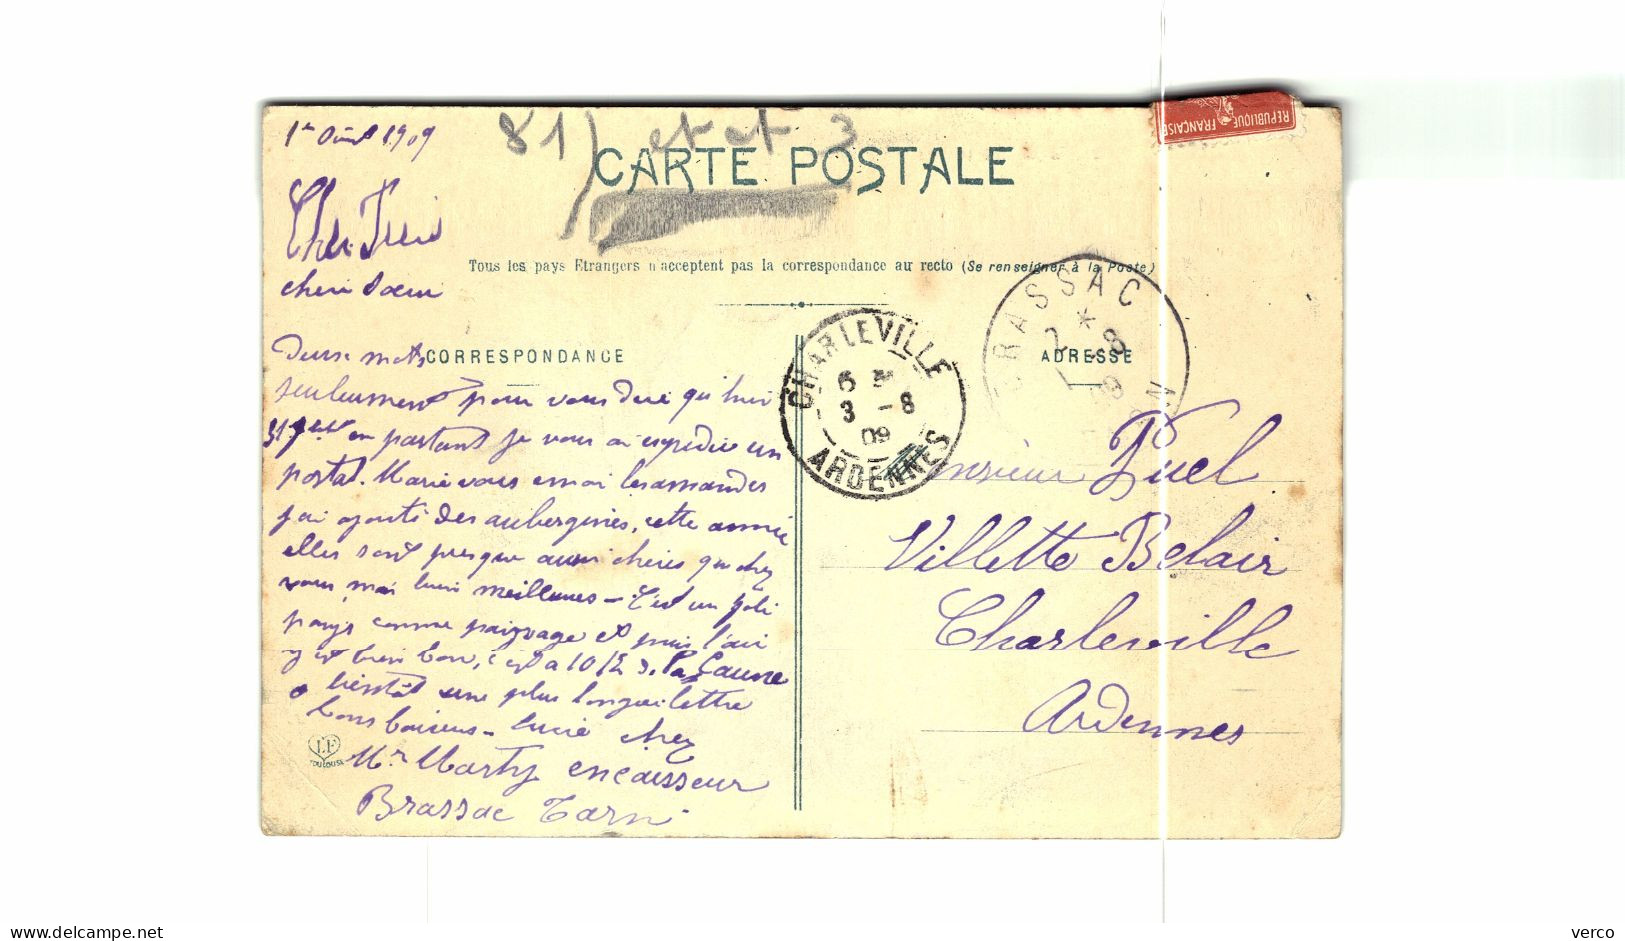 1er Août 1909
81) et et 3
CARTE POSTALE
REPUBLIQUE FRANÇAISE
Tous les pays Etrangers n'acceptent pas la correspondance au recto (Se renseigner à la Poste)
Cher
chere Soeur
CORRESPONDANCE
ADRESSE
BRASSAC
2 - 8
09
TARN
CHARLEVILLE
6
3 - 8
09
ARDENNES
Deux mots
seulement pour vous dire qu'hier
31 en partant je vous ai expédié un
postal. Marie vous envoi les amandes
j'ai ajouté des aubergines, cette année
elles sont presque aussi chères que chez
vous mai bien meilleures - C'est un joli
pays comme paizage et puis l'air
y est bien bon, c'est a 10 K d. Lacaune
a bientôt une plus longue lettre
bons baisers - Lucie chez
Mr Marty encaisseur
Brassac Tarn
L.F
TOULOUSE
Monsieur Puel
Villette Belair
Charleville
Ardennes
www.delcampe.net
verco